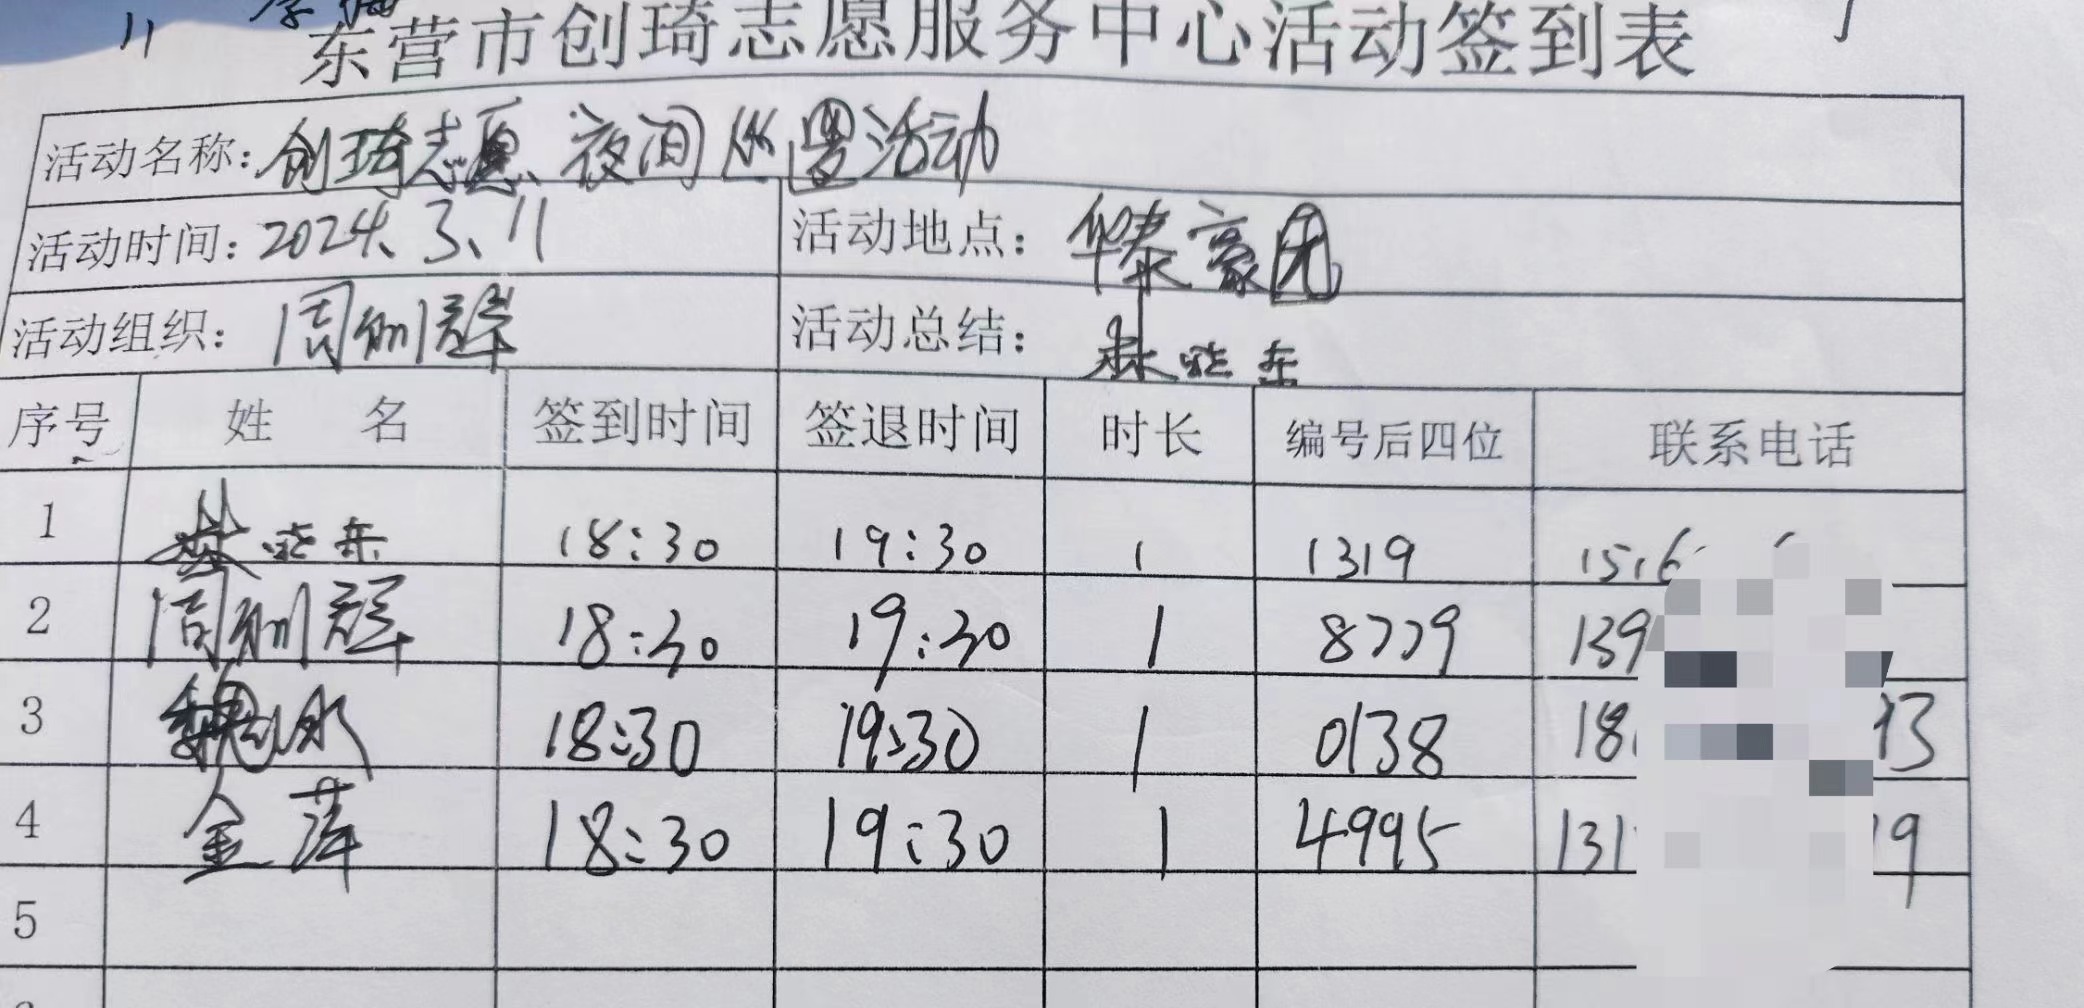 东营市创琦志愿服务中心活动签到表
活动名称: 创琦志愿夜间巡逻活动
活动时间: 2024.3.11 活动地点: 华泰豪园
活动组织: 周训辉 活动总结: 晓东
序号 姓 名 签到时间 签退时间 时长 编号后四位 联系电话
1 晓东 18:30 19:30 1 1319 1516
2 周训辉 18:30 19:30 1 8779 139
3 魏冰 18:30 19:30 1 0138 18 93
4 金萍 18:30 19:30 1 4995 131 19
5